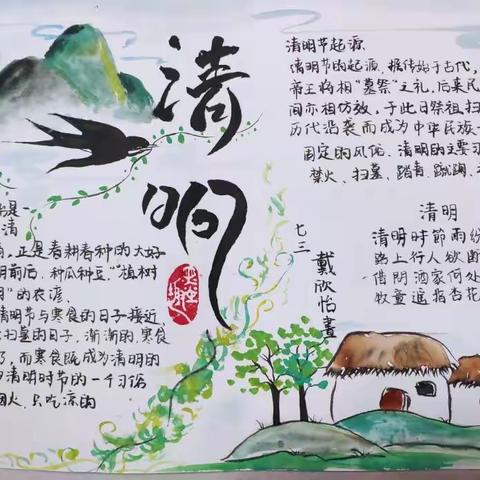 清明
清明节起源
清明节的起源,据传始于古代,
帝王将相"墓祭"之礼,后来民
间亦相仿效,于此日祭祖扫
历代沿袭而成为中华民族一
固定的风俗.清明的主要习
禁火、扫墓、踏青、蹴鞠、
清明
清明时节雨纷
路上行人欲断
借问酒家何处
牧童遥指杏花
七三
戴欣怡畫
是一
清
,正是春耕春种的大好
明前后,种瓜种豆."植树
明"的农谚.
清明节与寒食的日子接近
扫墓的日子,渐渐的,寒食
了,而寒食既成为清明的
清明时节的一个习俗
火,只吃凉的